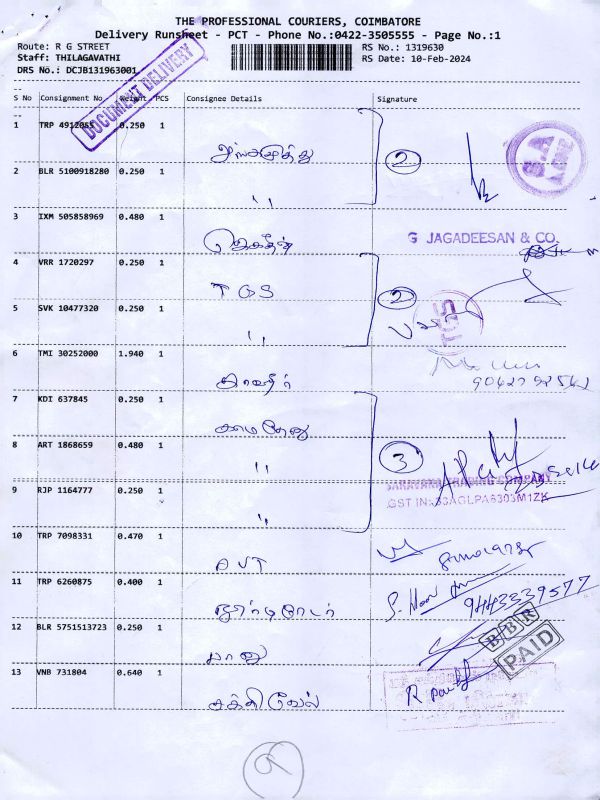 THE PROFESSIONAL COURIERS, COIMBATORE
Delivery Runsheet - PCT - Phone No.:0422-3505555 - Page No.:1
Route: R G STREET
Staff: THILAGAVATHI
DRS No.: DCJB131963001
RS No.: 1319630
RS Date: 10-Feb-2024
DOCUMENT DELIVERY
S No Consignment No Weight PCS Consignee Details Signature
1 TRP 4912055 0.250 1
2 BLR 5100918280 0.250 1 ,,
2
3 IXM 505858969 0.480 1
G JAGADEESAN & CO.
4 VRR 1720297 0.250 1 TGS
5 SVK 10477320 0.250 1 ,,
2
TGS
6 TMI 30252000 1.940 1
7 KDI 637845 0.250 1 காமதேனு
8 ART 1868659 0.480 1 ,,
9 RJP 1164777 0.250 1 ,,
3
TRADING COMPANY
10 TRP 7098331 0.470 1
11 TRP 6260875 0.400 1
9443339577
12 BLR 5751513723 0.250 1 பானு
BBR
PAID
13 VNB 731804 0.640 1 சக்திவேல்